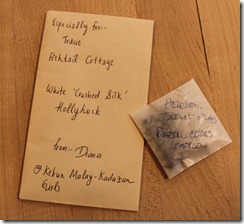 Especially for:-
Tracie
Fishtail Cottage
White 'Crushed Silk'
Hollyhock
from:- Diana
@ Kebun Malay-Kadazan
Girls
Heirloom
Sweet peas